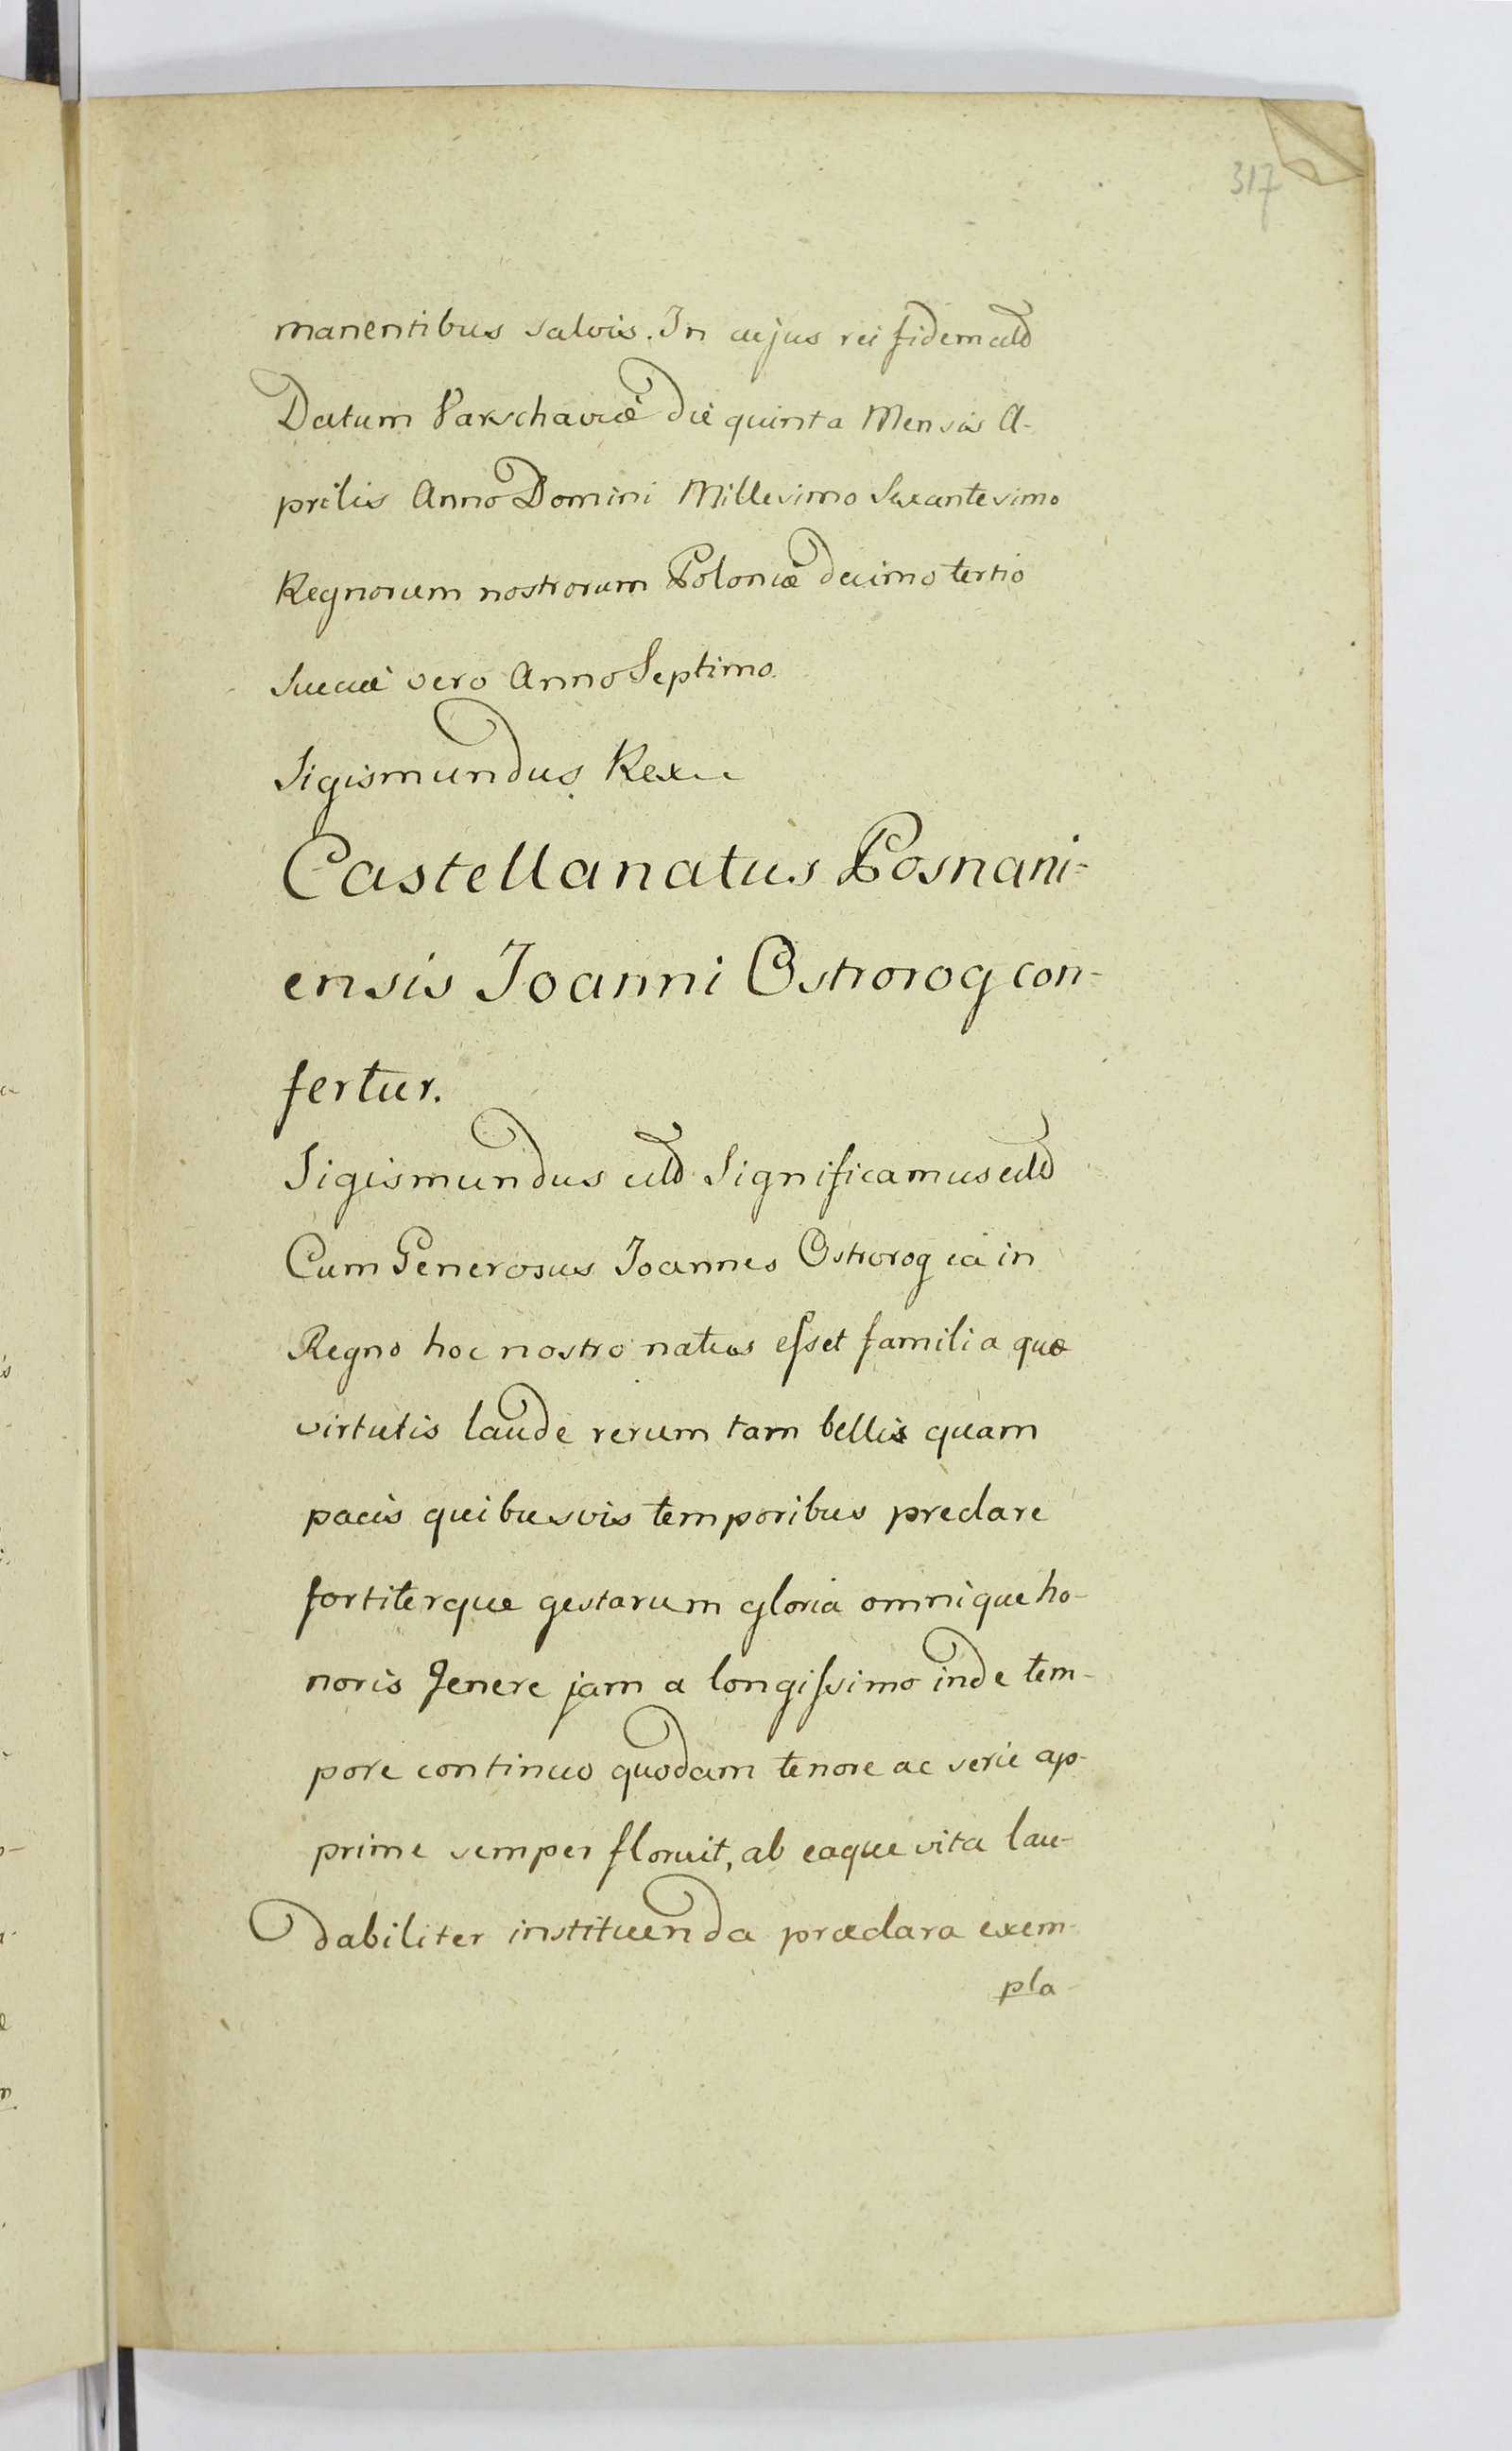 317
manentibus salvis. In cujus rei fidem etc
Datum Varschaviæ die quinta Mensis A-
prilis Anno Domini Millesimo Sexantesimo
Regnorum nostrorum Poloniæ decimo tertio
Sueciæ vero Anno Septimo.
Sigismundus Rex
Castellanatus Posnani-
ensis Joanni Ostrorog con-
fertur.
Sigismundus etc Significamus etc
Cum Generosus Joannes Ostrorog ea in
Regno hoc nostro natus eſset familia quæ
virtutis laude rerum tam bellis quam
pacis quibusvis temporibus preclare
fortiterque gestarum gloria omnique ho-
noris genere jam a longiſsimo inde tem-
pore continuo quodam tenore ac serie ap-
prime semper floruit, ab eaque vita lau-
dabiliter instituenda præclara exem-
pla